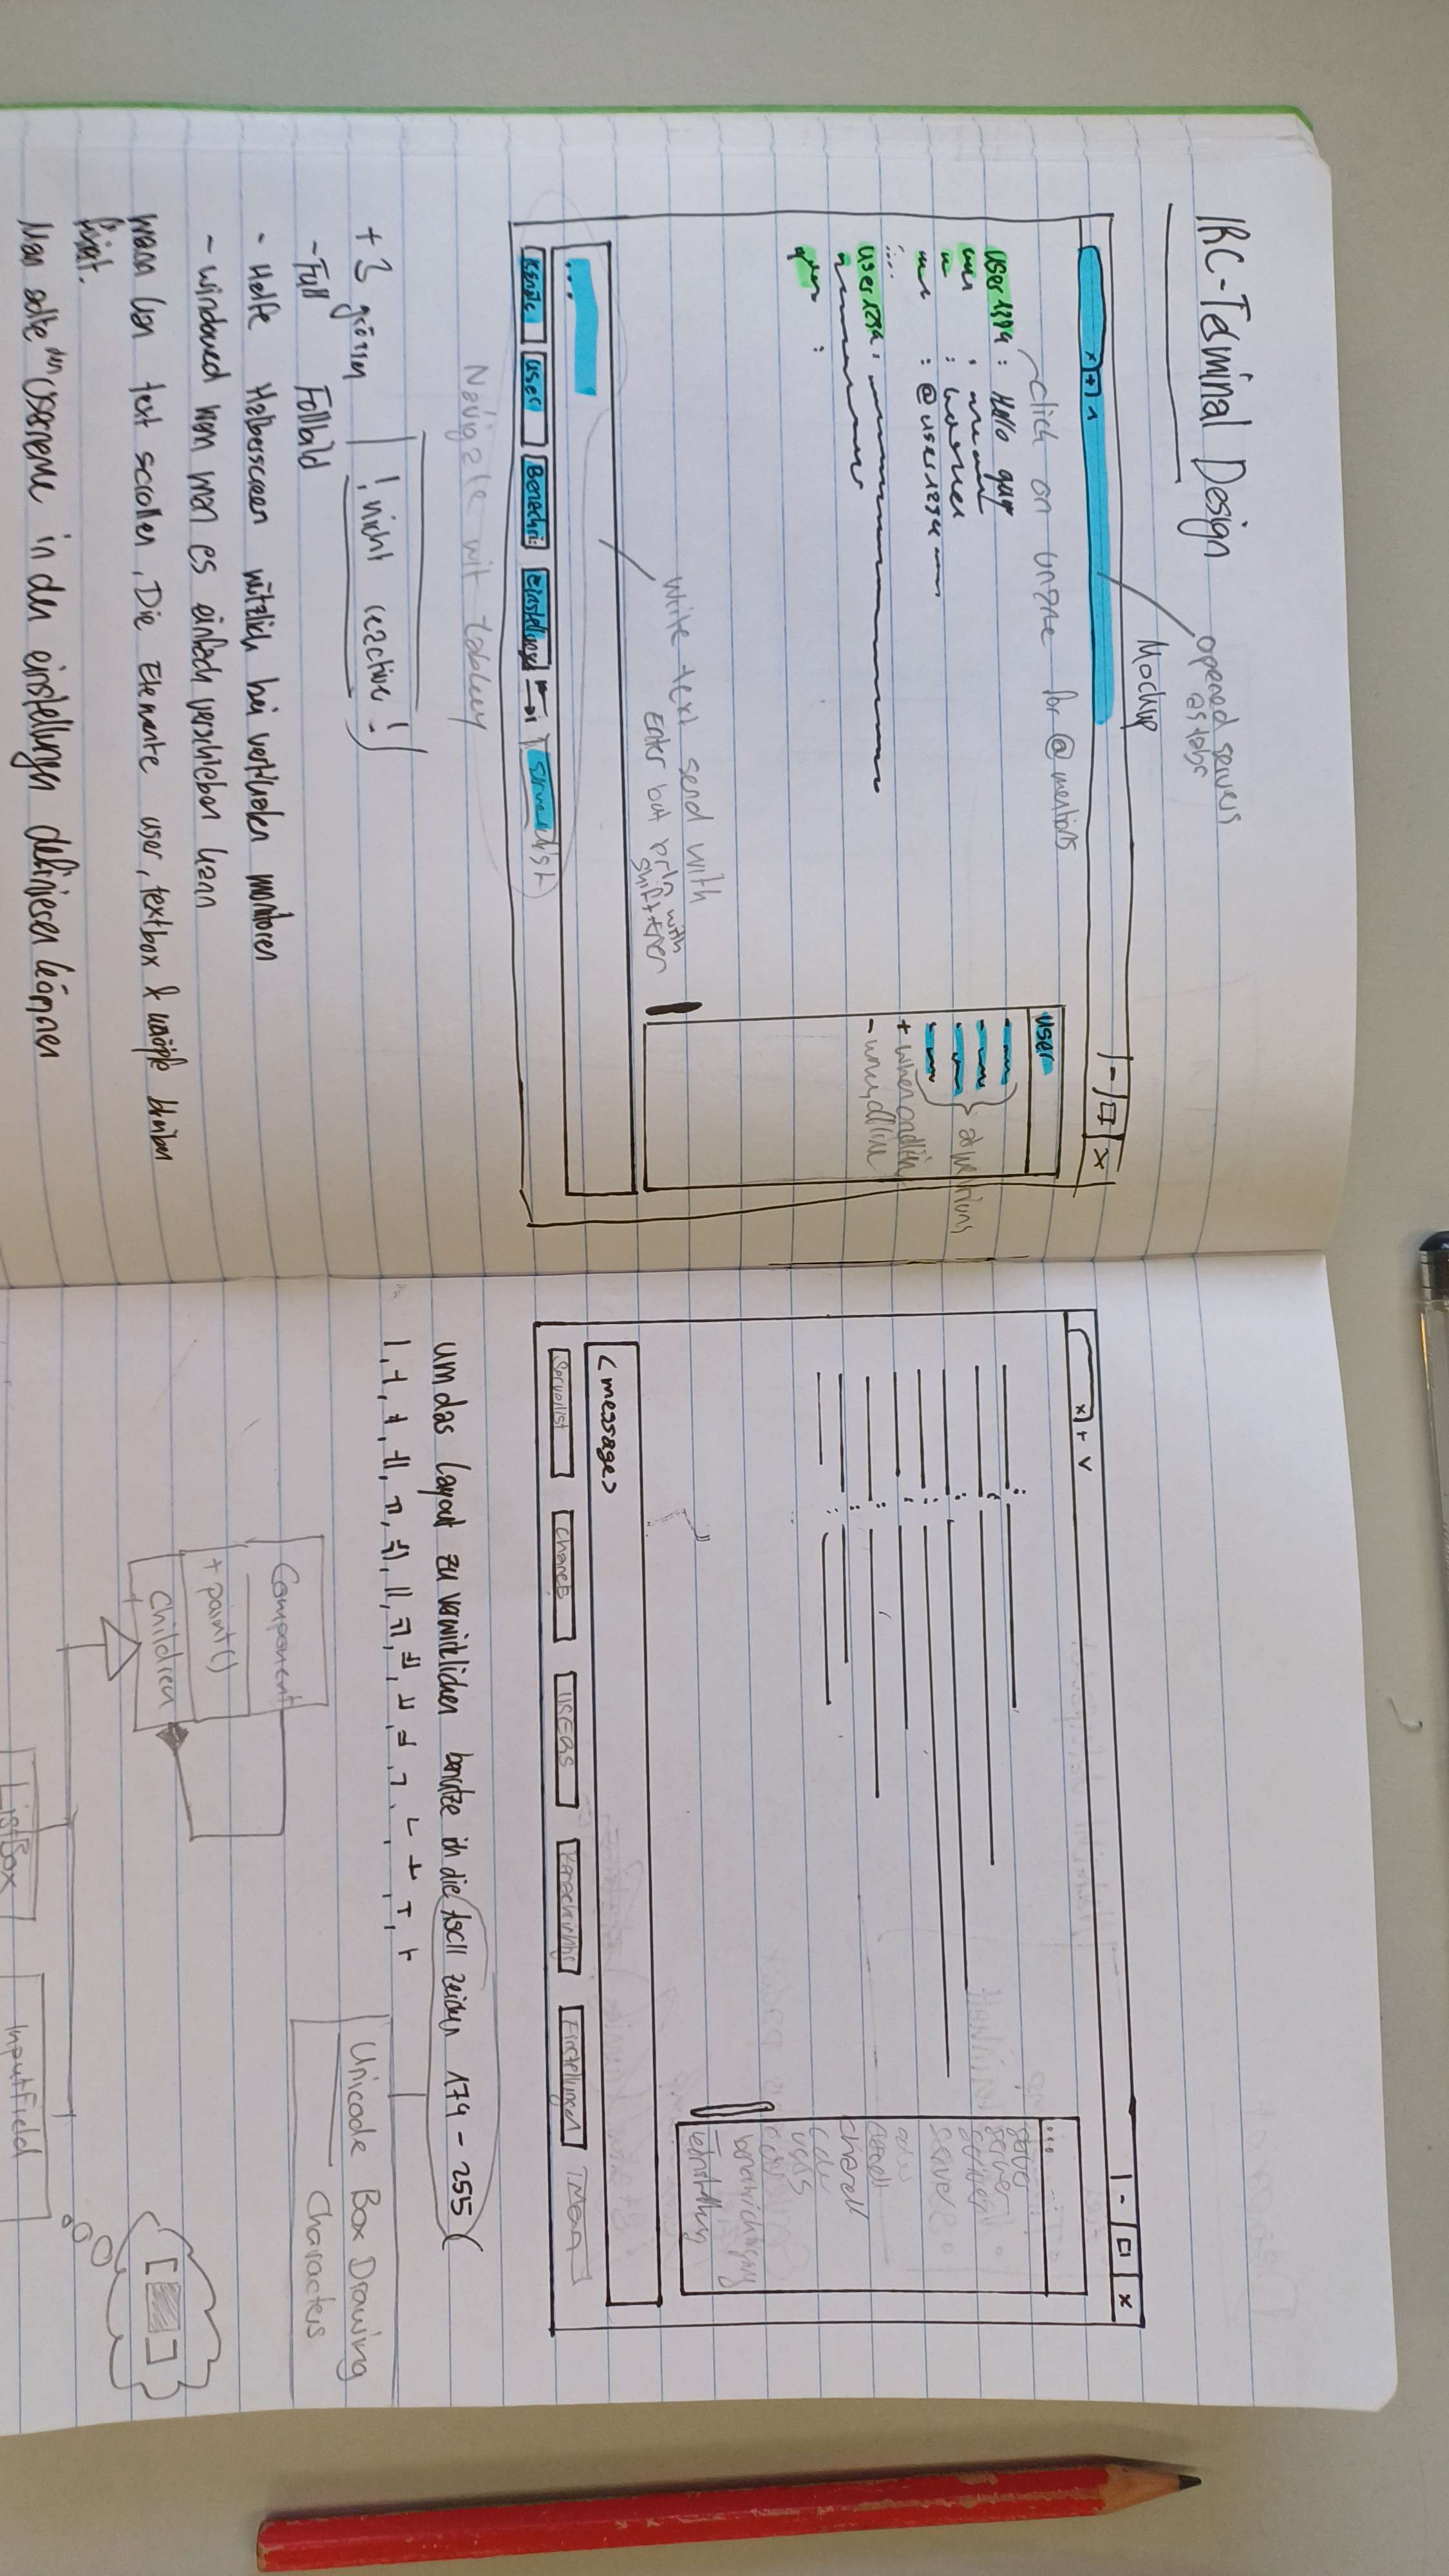 IRC-Terminal Design
opened servers
as tabs
Mockup
click on                for @ mentions
User 1234 : Hello guys
: @ user1234
User 1234 :
user
+ when
- when offline
Write text send with
Enter but               with
shift+Enter
...
Kanäle User Benachri: Einstellung Serverlist
Navigate wit tabkey
+ 3 grössen ! nicht reactive !
- Full Follbild
- Helfe Halberscreen nützlich bei vertikalen monitoren
- windowed wen man es einfach verschieben kann
text scrollen, Die Elemente user, textbox & knöpfe bleiben
fixiert.
Man solte den Username in den einstellungen definieren können
x + v - □ x
...
server
server
server
server
oder
chanell
oder
users
oder
benachrichtigung
einstellung
<message>
Serverlist Chanels USERS Benachrichtig Einstellungen
um das Layout zu verwirklichen benutze ich die ASCII zeichen 179 - 255 (
Unicode Box Drawing
Characters
Component
+ paint()
Children
ListBox InputField